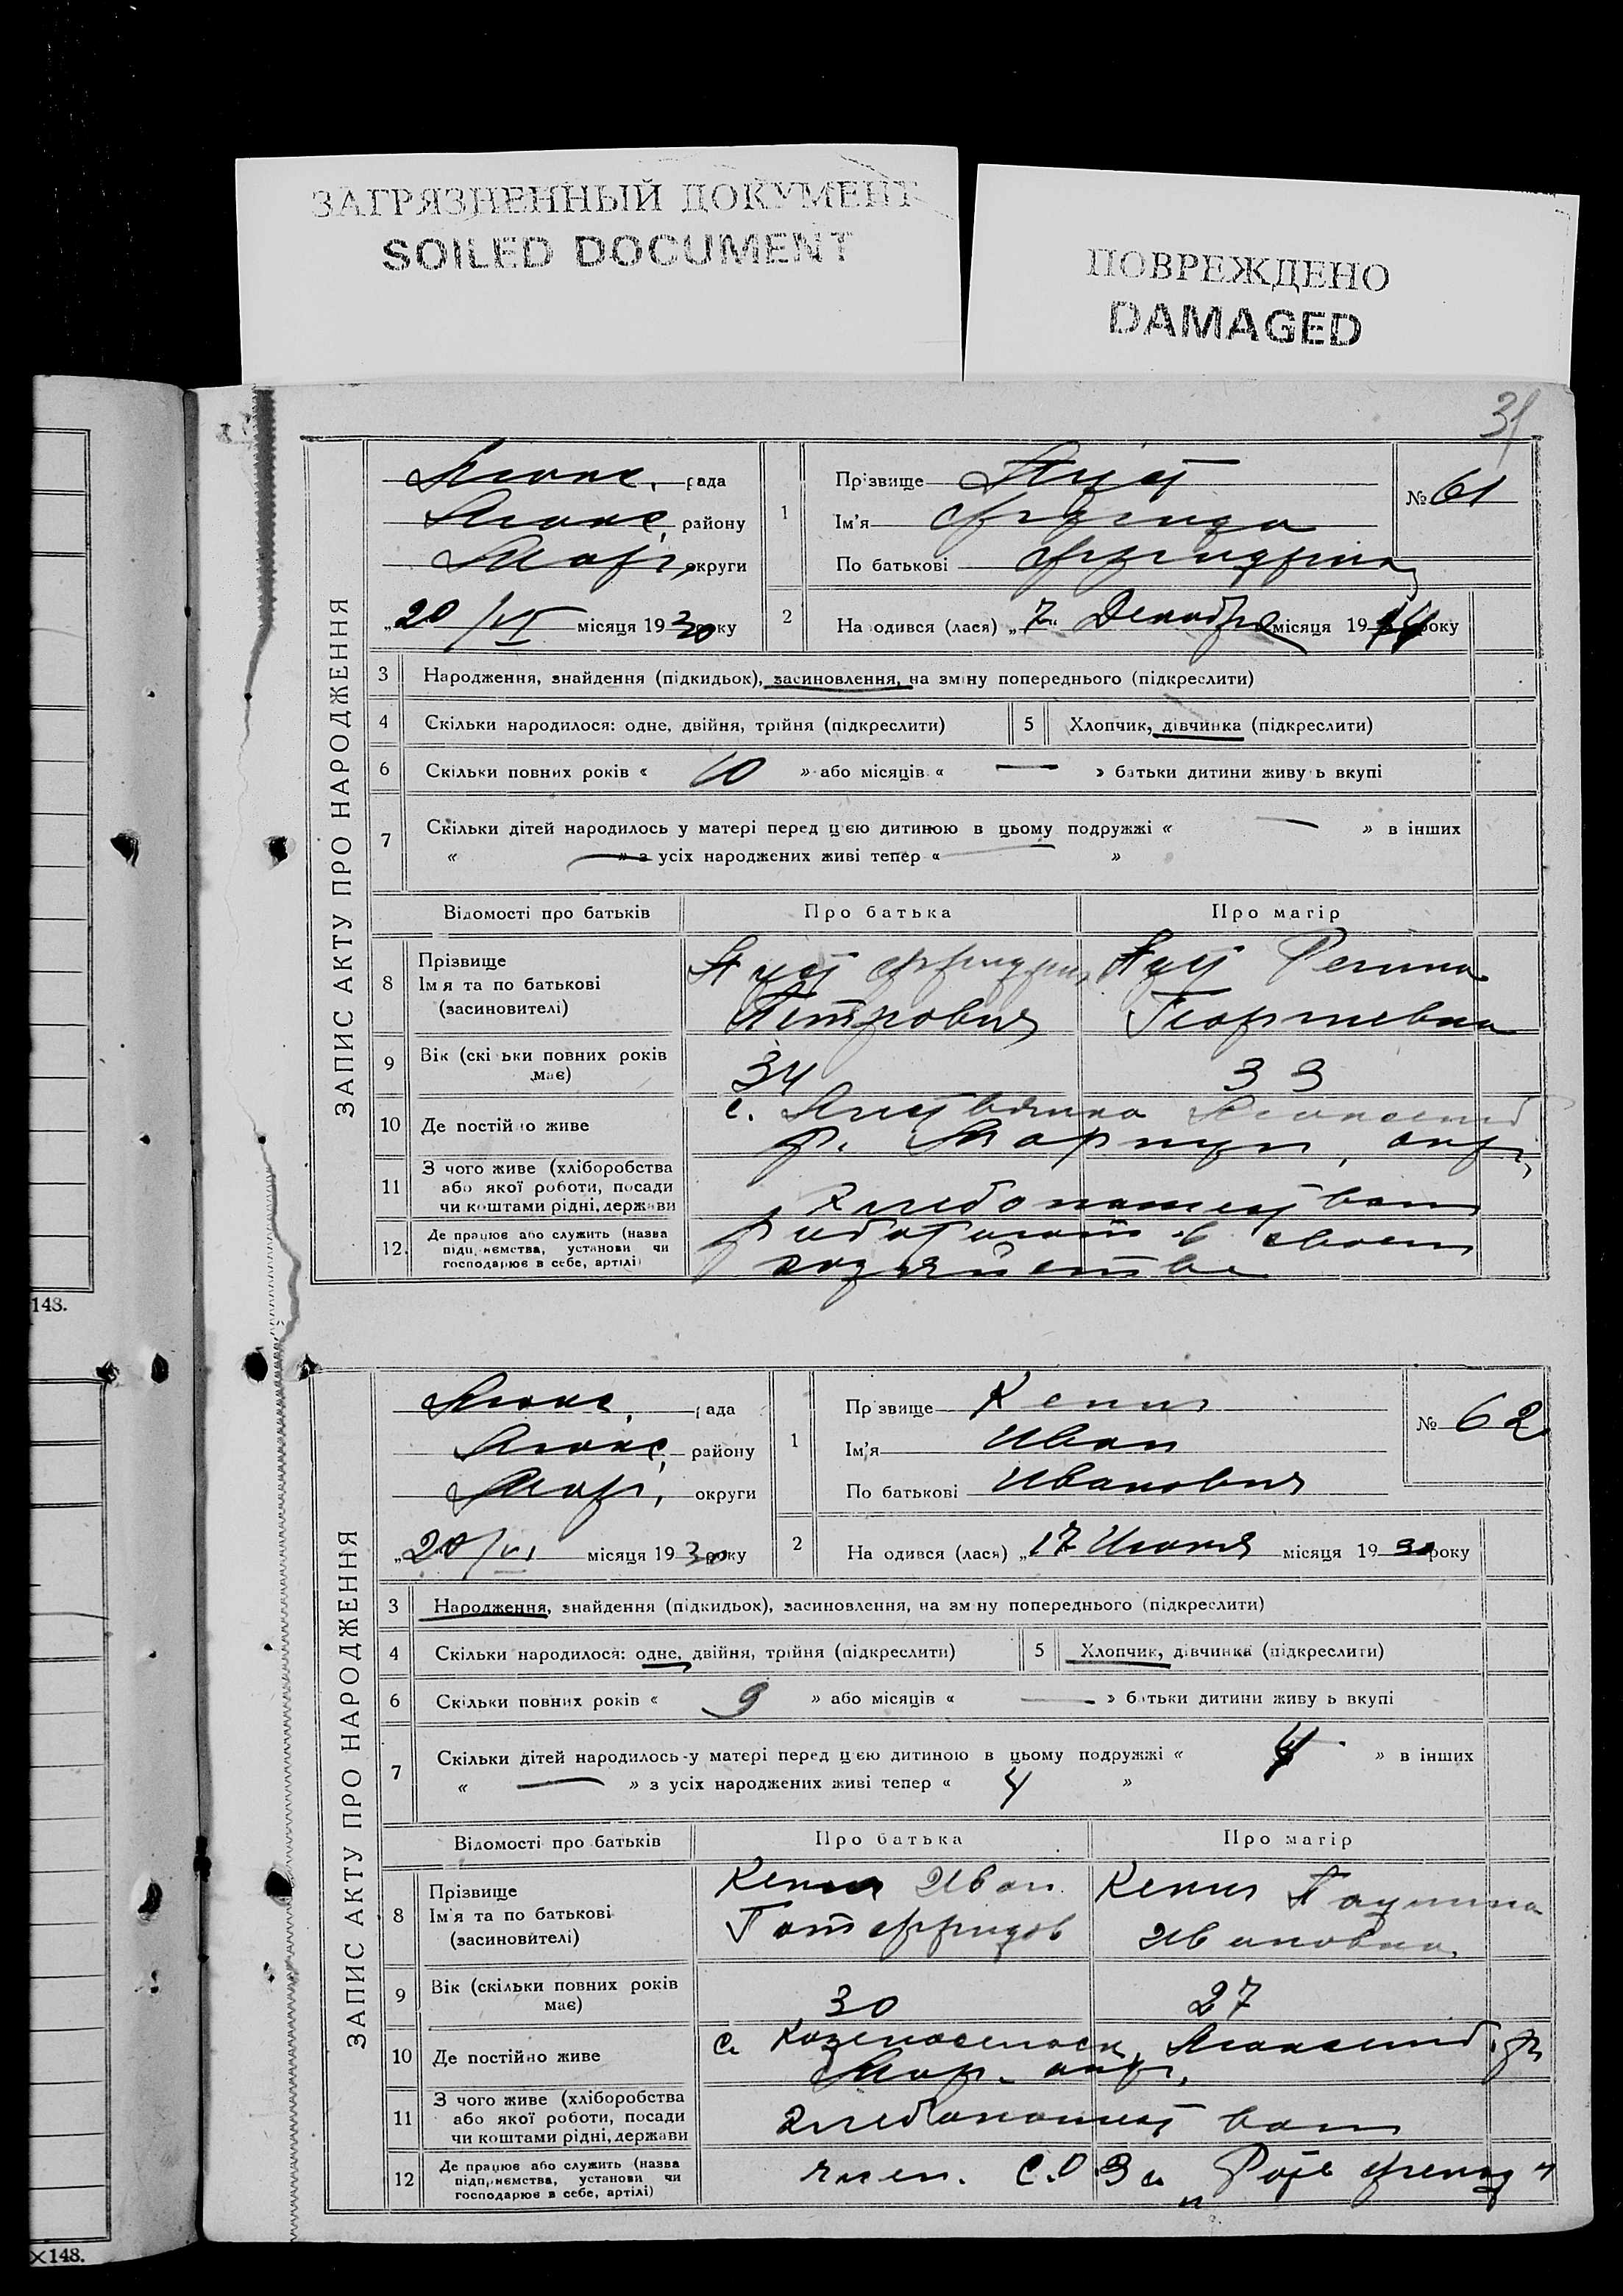 ЗАГРЯЗНЕННЫЙ ДОКУМЕНТ
SOILED DOCUMENT
ПОВРЕЖДЕНО
DAMAGED
31
ЗАПИС АКТУ ПРО НАРОДЖЕННЯ
Люкс. рада
Люкс. району
Мар. округи
„20/VI місяця 1930 року
1
Прізвище
Ім'я
По батькові
№ 61
2
На одився (лася) „7„ Декабря місяця 19 року
3 Народження, знайдення (підкидьок), засиновлення, на зміну попереднього (підкреслити)
4 Скільки народилося: одне, двійня, трійня (підкреслити)
5 Хлопчик, дівчинка (підкреслити)
6 Скільки повних років « 10 » або місяців « — » батьки дитини живу ь вкупі
7 Скільки дітей народилось у матері перед цією дитиною в цьому подружжі « — » в інших
« — » з усіх народжених живі тепер « — »
Відомості про батьків Про батька Про матір
8 Прізвище
Ім я та по батькові
(засновителі)
Петрович
Регина
Георгиевна
9 Вік (скі ьки повних років має) 34 33
10 Де постійно живе с. Люксемб
р. Мариуп, окр.
11 З чого живе (хліборобства
або якої роботи, посади
чи коштами рідні, держави
Хлебопашеством
12. Де працює або служить (назва
підп иємства, установи чи
господарює в себе, артілі)
работают в своем
хозяйстве
148.
ЗАПИС АКТУ ПРО НАРОДЖЕННЯ
Люкс. рада
Люкс. району
Мар. округи
„20/VI місяця 1930 року
1
Пр звище Кенин
Ім'я Иван
По батькові Иванович
№ 62
2
На одився (лася) „17 Июня місяця 1930 року
3 Народження, знайдення (підкидьок), засиновлення, на зм ну попереднього (підкреслити)
4 Скільки народилося: одне, двійня, трійня (підкреслити)
5 Хлопчик, дівчинка (підкреслити)
6 Скільки повних років « 9 » або місяців « — » батьки дитини живу ь вкупі
7 Скільки дітей народилось у матері перед цією дитиною в цьому подружжі « 4 » в інших
« — » з усіх народжених живі тепер « 4 »
Відомості про батьків Про батька Про матір
8 Прізвище
Ім'я та по батькові
(засиновителі)
Кенин Иван
Готтфридов
Кенин Паулина
Ивановна
9 Вік (скільки повних років має) 30 27
10 Де постійно живе с. Люксемб. р.
Мар. окр.
11 З чого живе (хліборобства
або якої роботи, посади
чи коштами рідні, держави
Хлебопашеством
12 Де працює або служить (назва
підприємства, установи чи
господарює в себе, артілі)
член. С.О.З а „Роте "
148.